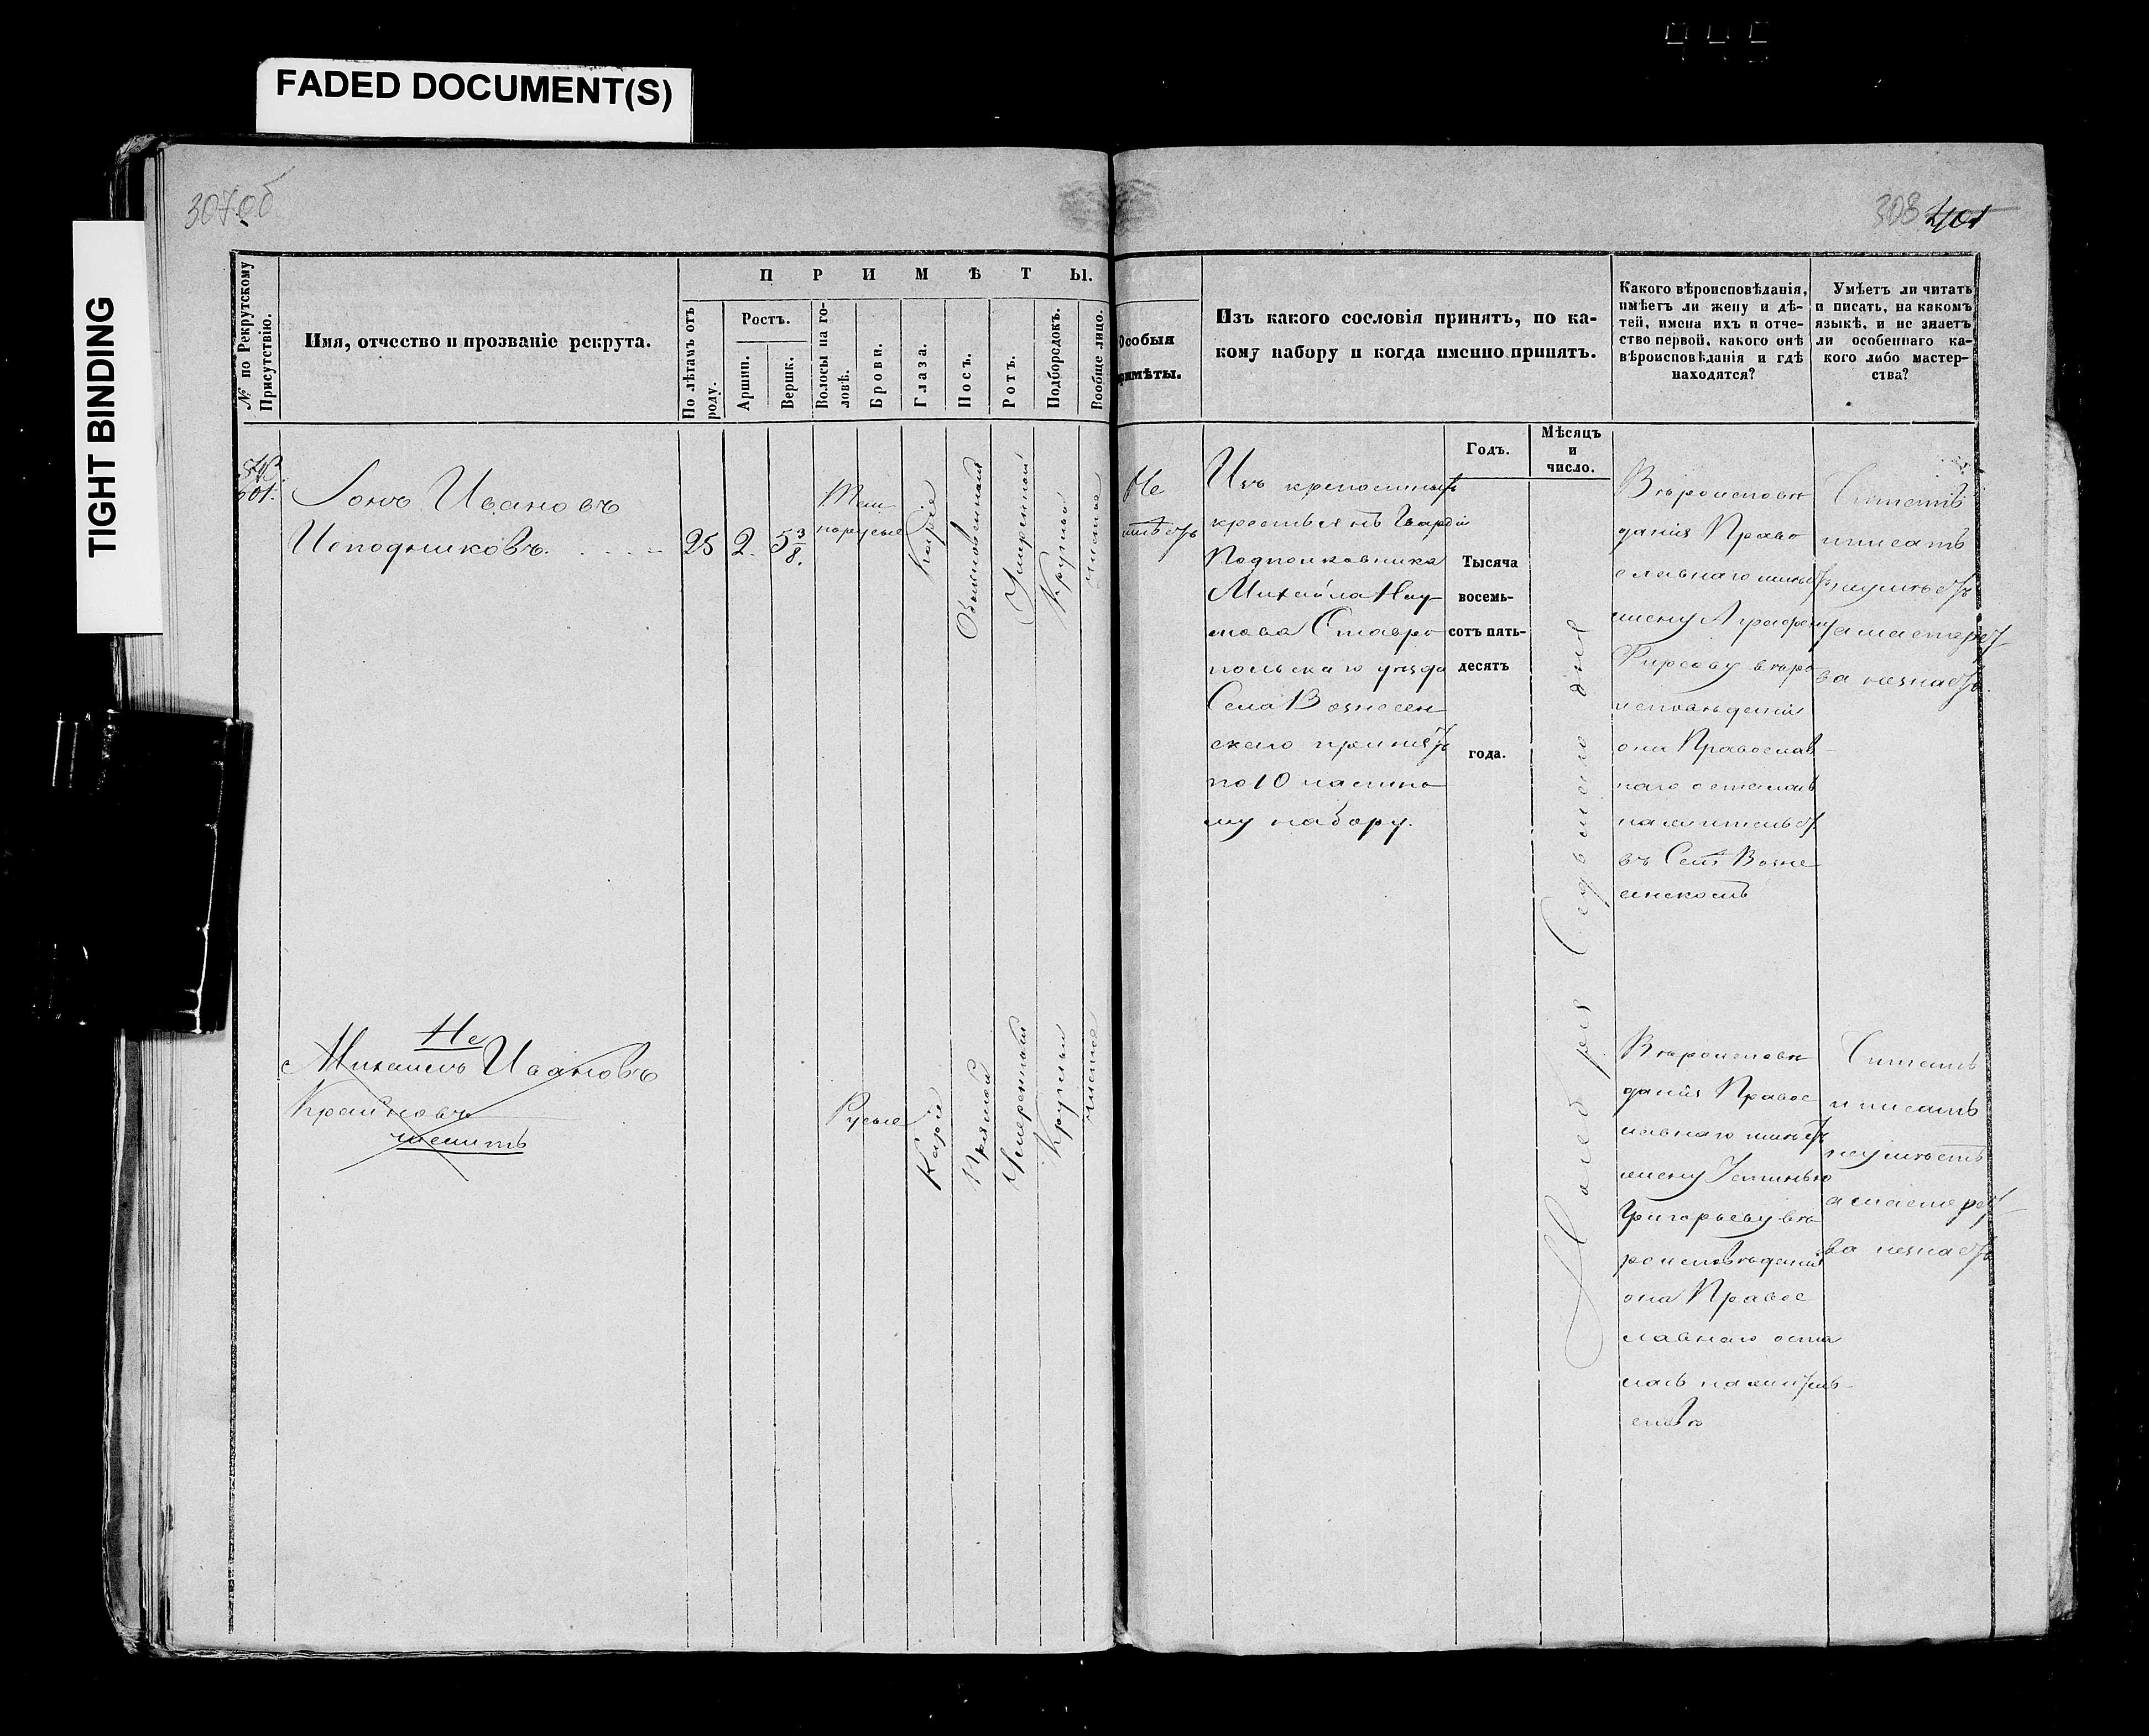 FADED DOCUMENT(S)
TIGHT BINDING
307об
308 401
№ по Рекрутскому
Присутствію.
Имя, отчество и прозваніе рекрута.
П Р И М Ѣ Т Ы.
По лѣтамъ отъ
роду.
Ростъ.
Аршин.
Вершк.
Волосы на го-
ловѣ.
Брови.
Глаза.
Носъ.
Ротъ.
Подбородокъ.
Вообще лицо.
Особыя
примѣты.
Изъ какого сословія принятъ, по ка-
кому набору и когда именно принятъ.
Какого вѣроисповѣданія,
имѣетъ ли жену и дѣ-
тей, имена ихъ и отче-
ство первой, какого онѣ
вѣроисповѣданія и гдѣ
находятся?
Умѣетъ ли читать
и писать, на какомъ
языкѣ, и не знаетъ
ли особеннаго ка-
кого либо мастер-
ства?
Годъ.
Мѣсяцъ
и
число.
601.
Іонъ Ивановъ
Исподниковъ.
25
2.
5 3/8.
Тем
норусые
Каріе
Обыкновенный
Умѣренной
Круглый
чистое
Не
имѣетъ
Изъ крепостныхъ
крестьянъ Гвардіи
Подполковника
Михайла Нау
мова Ставро
польскаго уѣзда
Села Вознесен
скаго принятъ
по 10 частно
му набору.
Тысяча
восемь-
сотъ пять-
десятъ
года.
Ноебря Седьмаго дня
Вѣроисповѣ
данія Право
славнаго имѣетъ
жену Аграфену
Фирсову вѣро
исповѣденія
она Православ
наго осталась
на жительст.
въ Селѣ Возне
сенскомъ
Читать
писать
неумѣетъ
а мастерст
ва незнаетъ.
Не
Михаилъ Ивановъ
Крайновъ
числить
Русые
Каріе
Прямой
Умеренный
Круглый
чистое
Вѣроисповѣ
данія Правос
лавнаго имѣетъ
жену Устинью
Григорьеву вѣ
роисповѣденія
она Правос
лавнаго оста
лась на житель
ствѣ
Читать
и писать
неумѣетъ
а мастерст
ва незнаетъ